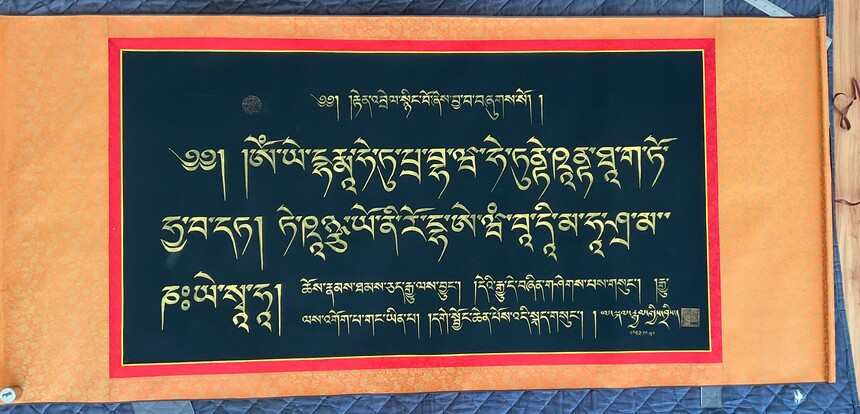 ༄༅། །རྟེན་འབྲེལ་སྙིང་པོ་ཞེས་བྱ་བ་བཞུགས་སོ། །
༄༅། །ཨོཾ་ཡེ་དྷརྨཱ་ཧེ་ཏུ་པྲ་བྷ་ཝ་ཧེ་ཏུནྟེ་ཥཱནྟ་ཐཱ་ག་ཏོ་
ཧྱ་བ་དཏ། ཏེ་ཥཱཉྩ་ཡོ་ནི་རོ་དྷ་ཨེ་ཝཾ་བཱ་དཱི་མ་ཧཱ་ཤྲ་མ་
ཎཿཡེ་སྭཱ་ཧཱ། ཆོས་རྣམས་ཐམས་ཅད་རྒྱུ་ལས་བྱུང་། །དེའི་རྒྱུ་དེ་བཞིན་གཤེགས་པས་གསུང་། །རྒྱུ་
ལས་འགོག་པ་གང་ཡིན་པ། །དགེ་སྦྱོང་ཆེན་པོས་འདི་སྐད་གསུང་། །